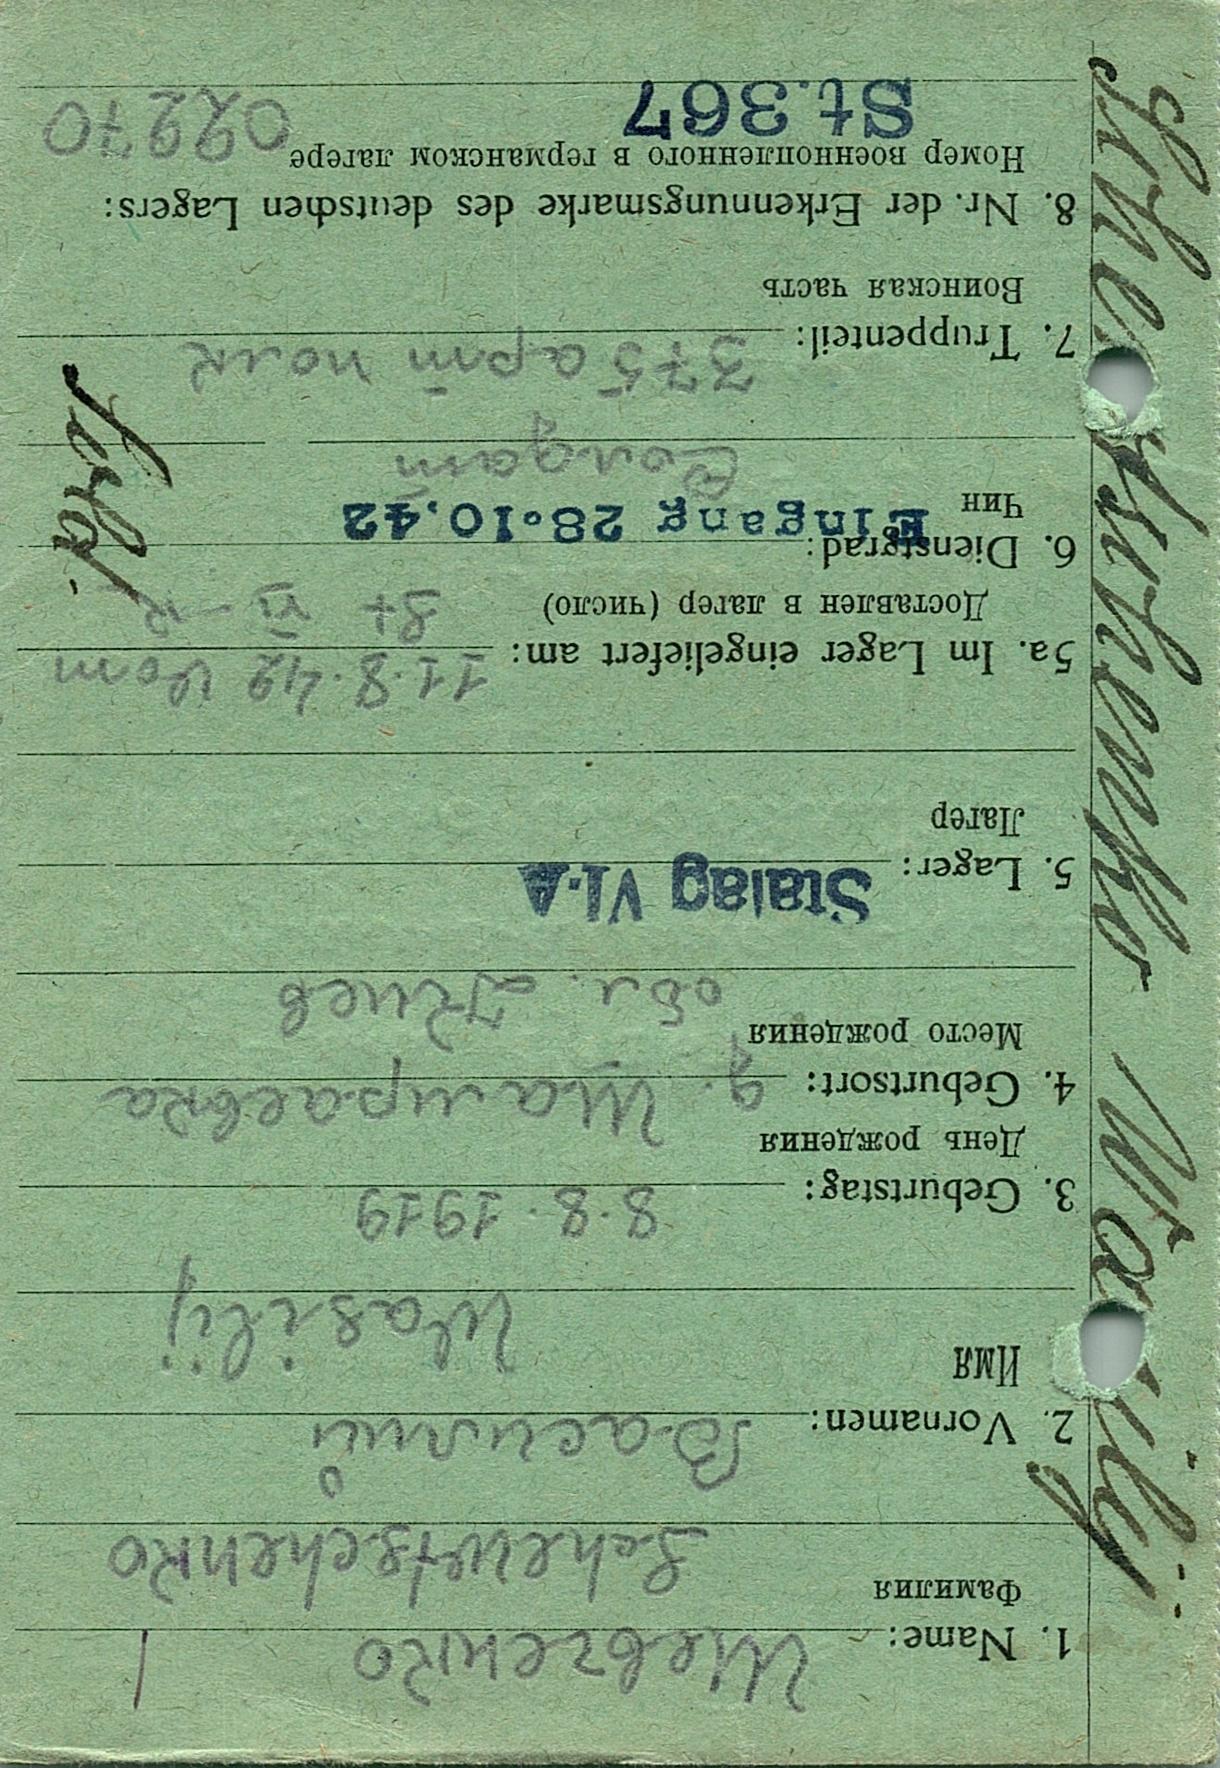 Schewtschenko Wasilij.
1. Name: Шевченко
Фамилия
Schewtschenko
2. Vornamen: Василий
Имя
Wasilij
3. Geburtstag: 8.8.1919
День рождения
4. Geburtsort: д.
Место рождения
обл. Киев
5. Lager: Stalag VI-A
Лагер
5a. Im Lager eingeliefert am: 11.8.42 vom
Доставлен в лагер (число) St VI-K
6. Dienstgrad: Eingang 28.10.42
Чин
Солдат
7. Truppenteil: 375 арт полк
Воинская часть
8. Nr. der Erkennungsmarke des deutschen Lagers:
Номер военнопленного в германском лагере
St.367 02270